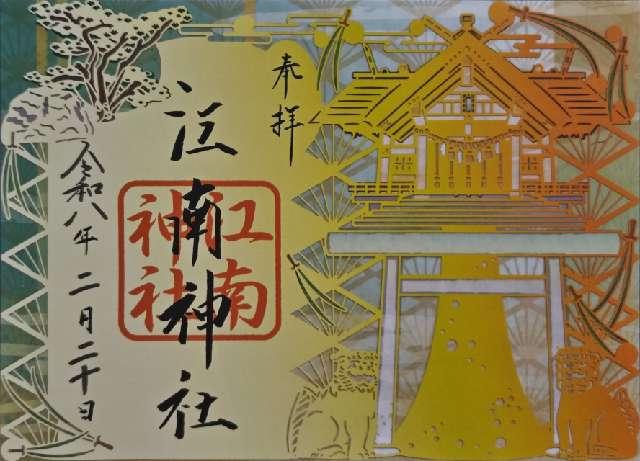 奉拝
江南神社
令和八年二月二十日
江南
神社